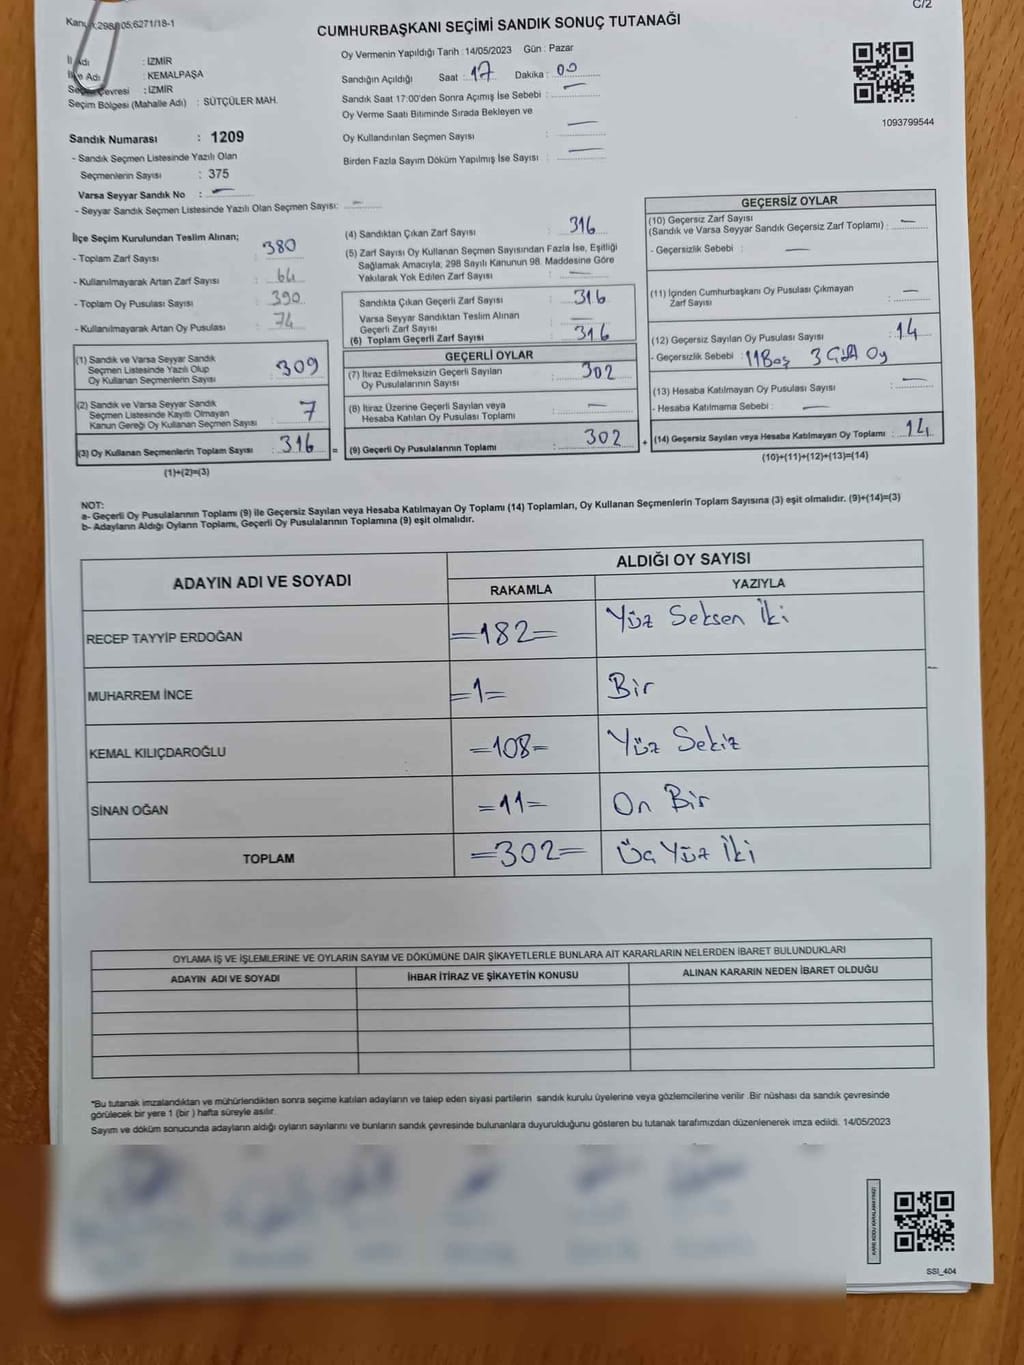 C/2
CUMHURBAŞKANI SEÇİMİ SANDIK SONUÇ TUTANAĞI
Oy Vermenin Yapıldığı Tarih :14/05/2023 Gün : Pazar
: İZMİR
: KEMALPAŞA
Seçim Çevresi : İZMİR
Seçim Bölgesi (Mahalle Adı) : SÜTÇÜLER MAH.
Sandığın Açıldığı Saat : 17 Dakika : 00
Sandık Saat 17:00'den Sonra Açımış İse Sebebi :
Oy Verme Saati Bitiminde Sırada Bekleyen ve
Oy Kullandırılan Seçmen Sayısı :
Birden Fazla Sayım Döküm Yapılmış İse Sayısı :
1093799544
Sandık Numarası : 1209
- Sandık Seçmen Listesinde Yazılı Olan
Seçmenlerin Sayısı : 375
Varsa Seyyar Sandık No :
- Seyyar Sandık Seçmen Listesinde Yazılı Olan Seçmen Sayısı:
İlçe Seçim Kurulundan Teslim Alınan;
- Toplam Zarf Sayısı : 380
- Kullanılmayarak Artan Zarf Sayısı : 64
- Toplam Oy Pusulası Sayısı : 390
- Kullanılmayarak Artan Oy Pusulası : 74
(1) Sandık ve Varsa Seyyar Sandık
Seçmen Listesinde Yazılı Olup
Oy Kullanan Seçmenlerin Sayısı : 309
(2) Sandık ve Varsa Seyyar Sandık
Seçmen Listesinde Kayıtlı Olmayan
Kanun Gereği Oy Kullanan Seçmen Sayısı : 7
(3) Oy Kullanan Seçmenlerin Toplam Sayısı : 316
(1)+(2)=(3)
(4) Sandıktan Çıkan Zarf Sayısı : 316
(5) Zarf Sayısı Oy Kullanan Seçmen Sayısından Fazla İse, Eşitliği
Sağlamak Amacıyla, 298 Sayılı Kanunun 98. Maddesine Göre
Yakılarak Yok Edilen Zarf Sayısı :
Sandıkta Çıkan Geçerli Zarf Sayısı : 316
Varsa Seyyar Sandıktan Teslim Alınan
Geçerli Zarf Sayısı :
(6) Toplam Geçerli Zarf Sayısı : 316
GEÇERLİ OYLAR
(7) İtiraz Edilmeksizin Geçerli Sayılan
Oy Pusulalarının Sayısı : 302
(8) İtiraz Üzerine Geçerli Sayılan veya
Hesaba Katılan Oy Pusulası Toplamı :
= (9) Geçerli Oy Pusulalarının Toplamı : 302
GEÇERSİZ OYLAR
(10) Geçersiz Zarf Sayısı
(Sandık ve Varsa Seyyar Sandık Geçersiz Zarf Toplamı) :
- Geçersizlik Sebebi :
(11) İçinden Cumhurbaşkanı Oy Pusulası Çıkmayan
Zarf Sayısı :
(12) Geçersiz Sayılan Oy Pusulası Sayısı : 14
- Geçersizlik Sebebi : 11 Boş 3 Çift Oy
(13) Hesaba Katılmayan Oy Pusulası Sayısı :
- Hesaba Katılmama Sebebi :
+ (14) Geçersiz Sayılan veya Hesaba Katılmayan Oy Toplamı : 14
(10)+(11)+(12)+(13)=(14)
NOT:
a- Geçerli Oy Pusulalarının Toplamı (9) ile Geçersiz Sayılan veya Hesaba Katılmayan Oy Toplamı (14) Toplamları, Oy Kullanan Seçmenlerin Toplam Sayısına (3) eşit olmalıdır. (9)+(14)=(3)
b- Adayların Aldığı Oyların Toplamı, Geçerli Oy Pusulalarının Toplamına (9) eşit olmalıdır.
ADAYIN ADI VE SOYADI ALDIĞI OY SAYISI
RAKAMLA YAZIYLA
RECEP TAYYİP ERDOĞAN =182= Yüz Seksen İki
MUHARREM İNCE =1= Bir
KEMAL KILIÇDAROĞLU =108= Yüz Sekiz
SİNAN OĞAN =11= On Bir
TOPLAM =302= Üç Yüz İki
OYLAMA İŞ VE İŞLEMLERİNE VE OYLARIN SAYIM VE DÖKÜMÜNE DAİR ŞİKAYETLERLE BUNLARA AİT KARARLARIN NELERDEN İBARET BULUNDUKLARI
ADAYIN ADI VE SOYADI İHBAR İTİRAZ VE ŞİKAYETİN KONUSU ALINAN KARARIN NEDEN İBARET OLDUĞU
*Bu tutanak imzalandıktan ve mühürlendikten sonra seçime katılan adayların ve talep eden siyasi partilerin sandık kurulu üyelerine veya gözlemcilerine verilir. Bir nüshası da sandık çevresinde
görülecek bir yere 1 (bir ) hafta süreyle asılır.
Sayım ve döküm sonucunda adayların aldığı oyların sayılarını ve bunların sandık çevresinde bulunanlara duyurulduğunu gösteren bu tutanak tarafımızdan düzenlenerek imza edildi. 14/05/2023
SSI_404